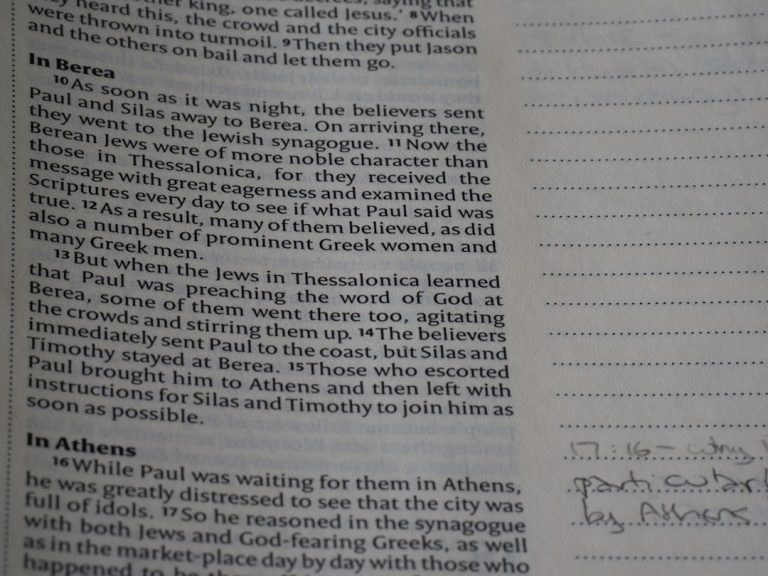 heard this, the crowd and the city officials
king, one called Jesus.' 8When
were thrown into turmoil. 9Then they put Jason
and the others on bail and let them go.
In Berea
10As soon as it was night, the believers sent
Paul and Silas away to Berea. On arriving there,
they went to the Jewish synagogue. 11Now the
Berean Jews were of more noble character than
those in Thessalonica, for they received the
message with great eagerness and examined the
Scriptures every day to see if what Paul said was
true. 12As a result, many of them believed, as did
also a number of prominent Greek women and
many Greek men.
13But when the Jews in Thessalonica learned
that Paul was preaching the word of God at
Berea, some of them went there too, agitating
the crowds and stirring them up. 14The believers
immediately sent Paul to the coast, but Silas and
Timothy stayed at Berea. 15Those who escorted
Paul brought him to Athens and then left with
instructions for Silas and Timothy to join him as
soon as possible.
In Athens
16While Paul was waiting for them in Athens,
he was greatly distressed to see that the city was
full of idols. 17So he reasoned in the synagogue
with both Jews and God-fearing Greeks, as well
as in the market-place day by day with those who
happened to be
17:16 - why
by Athens